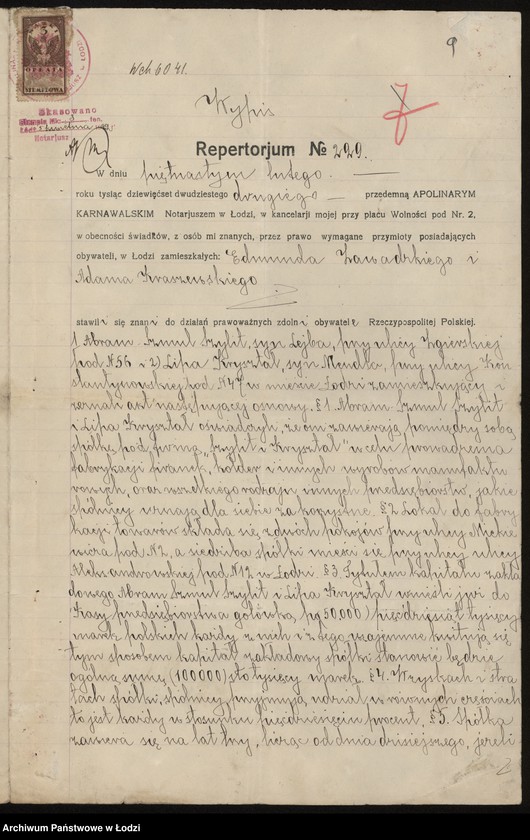 9
Wch 60.41.
Wypis
OPŁATA
STEMPLOWA
Skasowano
Notarjusz
Repertorjum № 229.
W dniu piętnastym lutego.
roku tysiąc dziewięćset dwudziestego drugiego — przedemną APOLINARYM
KARNAWALSKIM Notarjuszem w Łodzi, w kancelarji mojej przy placu Wolności pod Nr. 2,
w obecności świadków, z osób mi znanych, przez prawo wymagane przymioty posiadających
obywateli, w Łodzi zamieszkałych: Edmunda Zawadzkiego i
Adama Kraszewskiego
stawili się znani do działań prawoważnych zdolni obywatele Rzeczypospolitej Polskiej.
1, Abram-Szmul Szylit, syn Lejba, przy ulicy Zgierskiej
pod N56 i 2) Lipa Kryształ, syn Mendla, przy ulicy Kon
stantynowskiej pod N47 w mieście Łodzi zamieszkujący i
zeznali akt następującej osnowy: §1. Abram-Szmul Szylit
i Lipa Kryształ oświadczyli, że oni zawierają pomiędzy sobą
spółkę pod firmą „Szylit i Kryształ" w celu prowadzenia
fabrykacji firanek, kołder i innych wyrobów manufaktu
rowych, oraz wszelkiego rodzaju innych przedsiębiorstw, jakie
spólnicy uznają dla siebie za korzystne. §2. Lokal do fabry
kacji towarów składa się z dwóch pokojów przy ulicy Mickie
wicza pod N2, a siedziba spółki mieści się przy ulicy
Aleksandrowskiej pod N12 w Łodzi. §3. Tytułem kapitału zakła
dowego Abram-Szmul Szylit i Lipa Kryształ wnieśli już do
Kasy przedsiębiorstwa gotówką po 50,000) pięćdziesiąt tysięcy
marek polskich każdy z nich i z tego wzajemnie kwitują się
tym sposobem kapitał zakładowy spółki stanowić będzie
ogólną sumę (100000) sto tysięcy marek. §4. W zyskach i stra
tach spółki, spólnicy przyjmują udział w równych częściach
to jest każdy w stosunku pięćdziesięciu procent. §5. Spółka
zawiera się na lat trzy, licząc od dnia dzisiejszego, jeżeli
Archiwum Państwowe w Łodzi